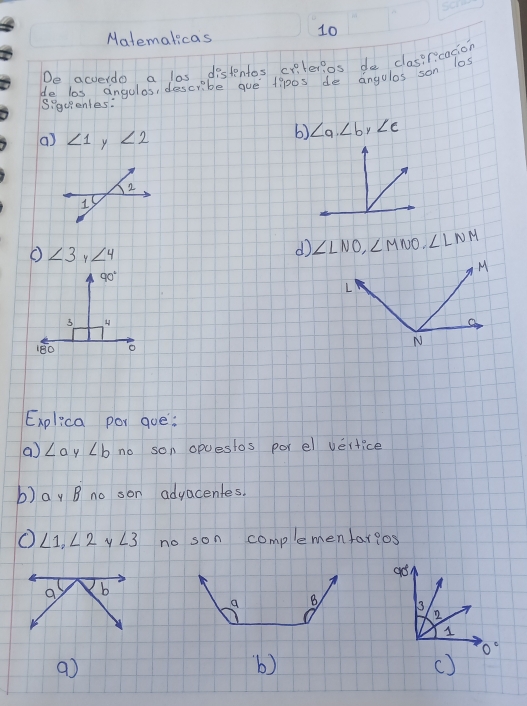 Matematicas 10
De acuerdo a los distintos criterios de clasificación
de los ángulos, describe que tipos de ángulos son los
Siguientes:
a) ∠1 y ∠2
b) ∠a, ∠b y ∠c
1
2
c) ∠3 y ∠4
d) ∠LNO, ∠MNO, ∠LNM
90°
3
4
180
0
L
M
O
N
Explica por que:
a) ∠a y ∠b no son opuestos por el vértice
b) a y B no son adyacentes.
c) ∠1, ∠2 y ∠3 no son complementarios
a
b
a
B
90°
3
2
1
0°
a)
b)
c)